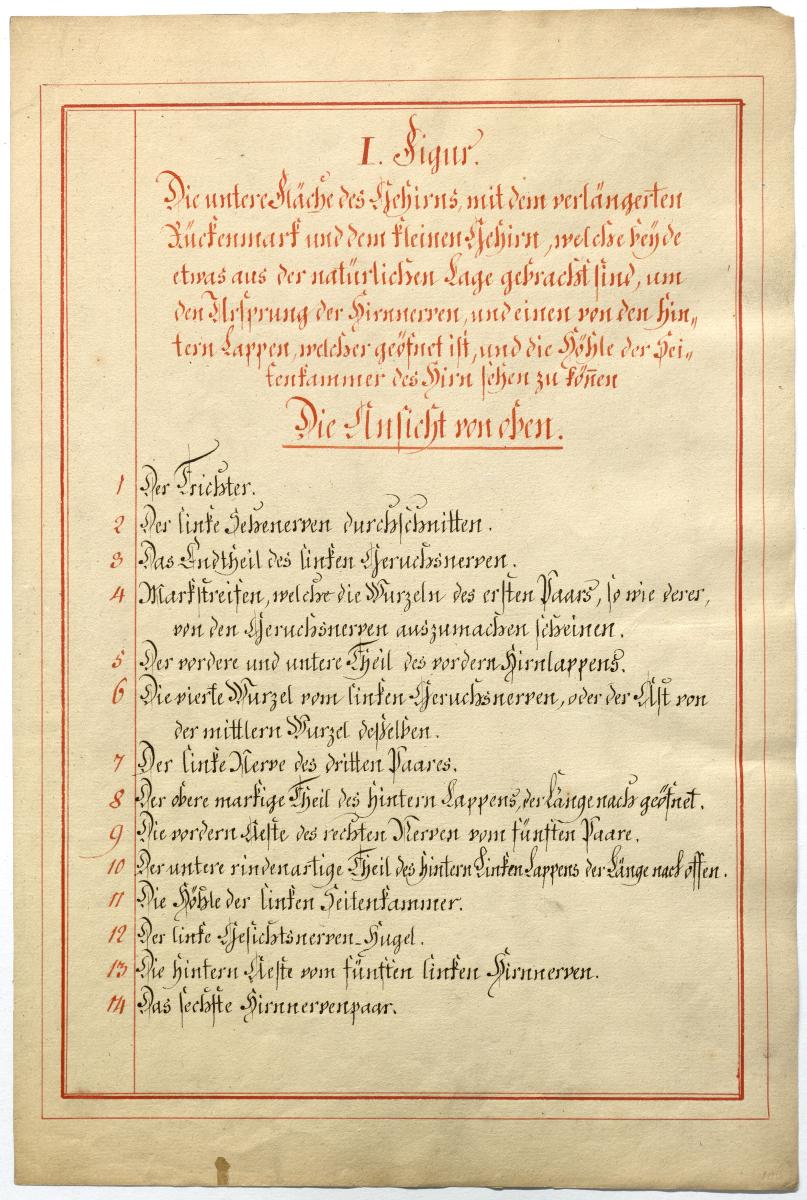 I. Figur.
Die untere Fläche des Gehirns, mit dem verlängerten
Rückenmark und dem kleinen Gehirn, welche beyde
etwas aus der natürlichen Lage gebracht sind, um
den Ursprung der Hirnnerven, und einen von den hin„
tern Lappen, welcher geöfnet ist, und die Höhle der Sei„
tenkammer des Hirn sehen zu kön̄en
Die Ansicht von oben.
1 Der Trichter.
2 Der linke Sehenerven durchschnitten.
3 Das Endtheil des linken Geruchsnerven.
4 Markstreifen, welche die Wurzeln des ersten Paars, so wie derer,
von den Geruchsnerven auszumachen scheinen.
5 Der vordere und untere Theil des vordern Hirnlappens.
6 Die vierte Wurzel vom linken Geruchsnerven, oder der Ast von
der mittlern Wurzel desselben.
7 Der linke Nerve des dritten Paares.
8 Der obere markige Theil des hintern Lappens, der Länge nach geöfnet.
9 Die vordern Aeste des rechten Nerven vom fünften Paare.
10 Der untere rindenartige Theil des hintern Linken Lappens der Länge nach offen.
11 Die Höhle der linken Seitenkammer.
12 Der linke Gesichtsnerven-Hugel.
13 Die hintern Aeste vom fünften linken Hirnnerven.
14 Das sechste Hirnnervenpaar.